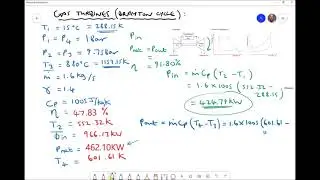 GAS TURBINES (BRAYTON CYCLE):
T₁ = 15°C = 288.15K
P₁ = P₄ = 1 Bar
P₂ = P₃ = 9.75 Bar
T₃ = 880°C = 1153.15K
ṁ = 1.6 kg/s
γ = 1.4
Cp = 1005 J/kg/K
η = 47.83 %
T₂ = 552.32 K
Φin = 966.17KW
Pnett = 462.10KW
T₄ = 601.61 K
Pin
Pnett = Pout
η = 91.80%
Pin = ṁ Cp (T₂ - T₁)
= 1.6 x 1005 (552.32 - 288.15)
= 424.79 KW
Pout = ṁ Cp (T₄ - T₃) = 1.6 x 1005 (601.61 -
=